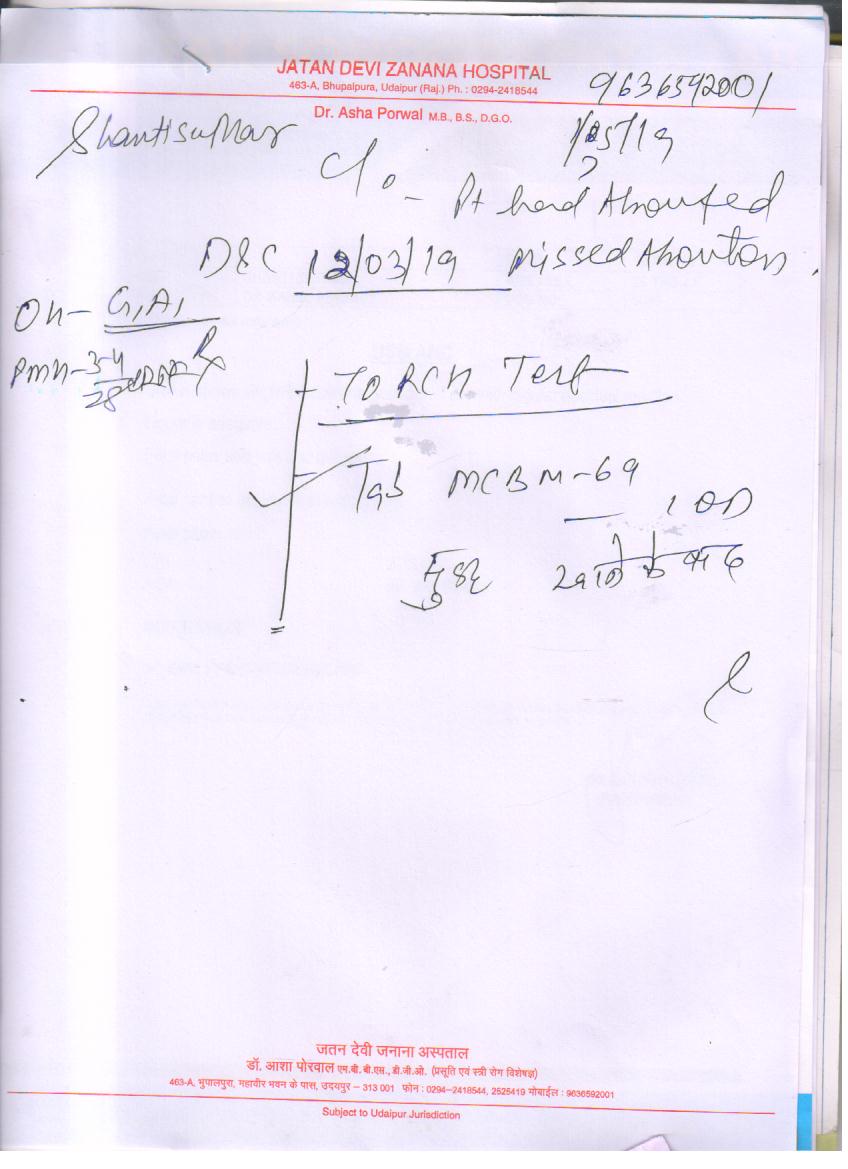 JATAN DEVI ZANANA HOSPITAL
463-A, Bhupalpura, Udaipur (Raj.) Ph. : 0294-2418544
9636592001
Dr. Asha Porwal M.B., B.S., D.G.O.
C/o - Pt had Aboufed
D&C 12/03/19 missed Abortion.
OH- G1A1
PMH-3-4/28
Rx
TORCH Test
Tab MCBM-69
1 OD
सुबह खाने के बाद
जतन देवी जनाना अस्पताल
डॉ. आशा पोरवाल एम.बी. बी.एस., डी.जी.ओ. (प्रसूति एवं स्त्री रोग विशेषज्ञ)
463-A, भुपालपुरा, महावीर भवन के पास, उदयपुर – 313 001 फोन : 0294-2418544, 2525419 मोबाईल : 9636592001
Subject to Udaipur Jurisdiction